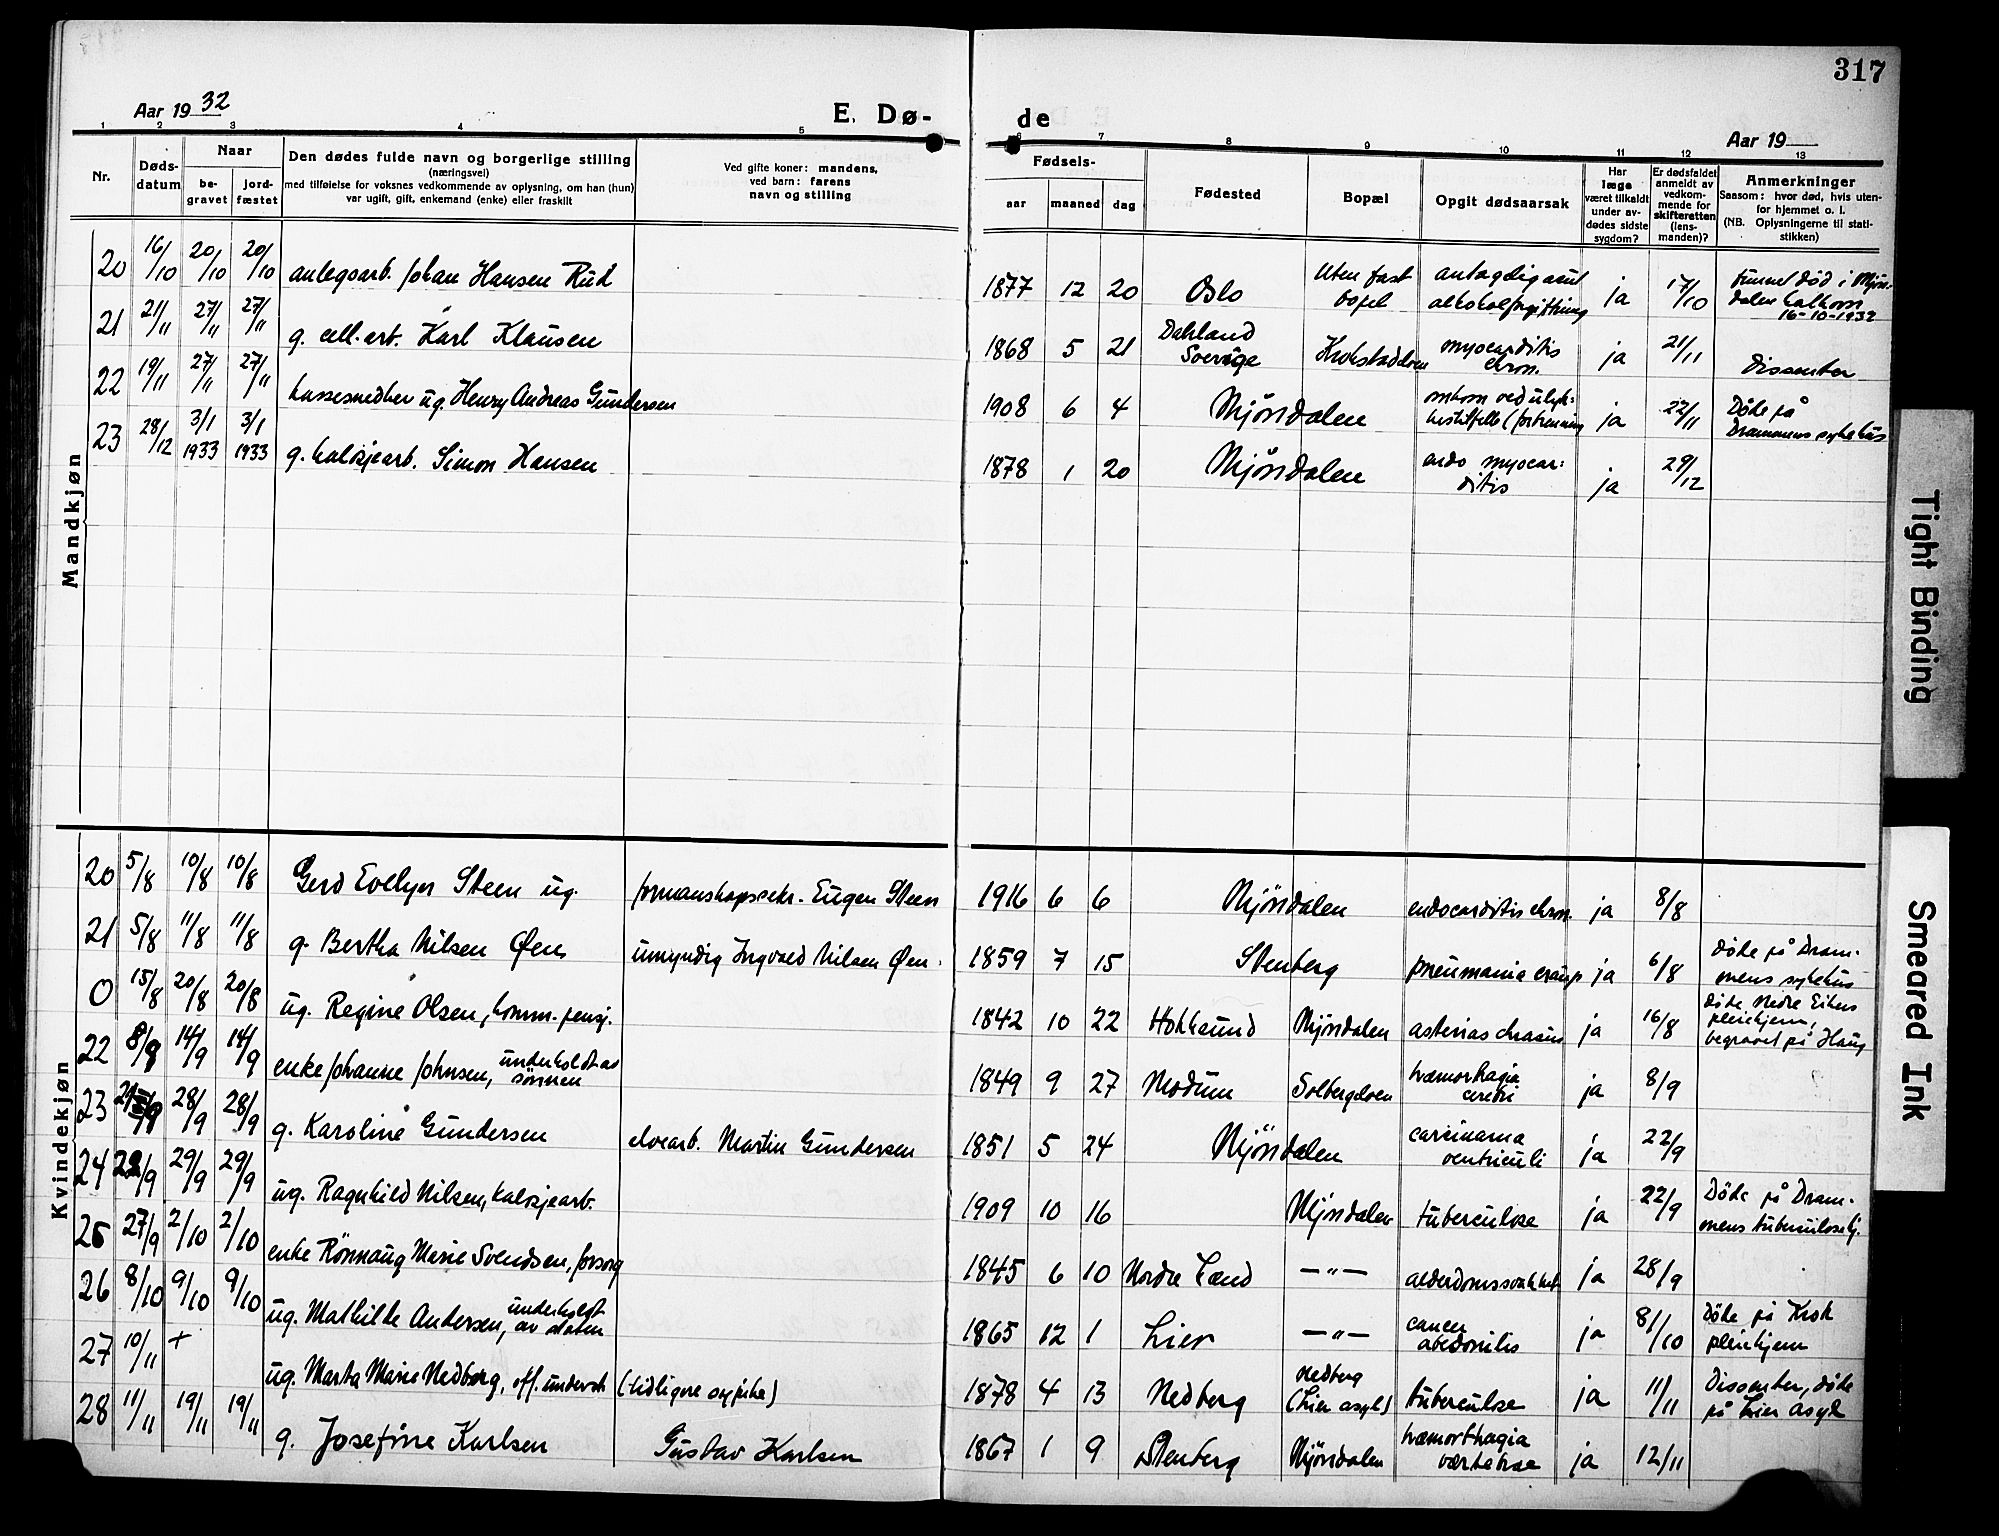 317
Aar 1932
E. Dø-
de
Aar 19
1 2 3 4 5 6 7 8 9 10 11 12 13
Nr.
Døds-
datum
Naar
be-
gravet
jord-
fæstet
Den dødes fulde navn og borgerlige stilling
(næringsvei)
med tilføielse for voksnes vedkommende av oplysning, om han (hun)
var ugift, gift, enkemand (enke) eller fraskilt
Ved gifte koner: mandens,
ved barn: farens
navn og stilling
Fødsels-
aar maaned dag
Fødested
Bopæl
Opgit dødsaarsak
Har
læge
været tilkaldt
under av-
dødes sidste
sygdom?
Er dødsfaldet
anmeldt av
vedkom-
mende for
skifteretten
(lens-
manden)?
Anmerkninger
Saasom: hvor død, hvis uten-
for hjemmet o. l.
(NB. Oplysningerne til stati-
stikken)
Mandkjøn
20 16/10 20/10 20/10 anlegsarb. Johan Hansen Rud 1877 12 20 Oslo Uten fast bopel antagelig akut alkoholforgiftning ja 17/10 funnet død i Mjøn-
dalen kalkovn
16-10-1932
21 21/11 27/11 27/11 g. cell.arb. Karl Klausen 1868 5 21 Dahland Sverige Krokstadelven myocarditis chron. ja 21/11 Dissenter
22 19/11 27/11 27/11 kassesnedker ug. Henry Andreas Gundersen 1908 6 4 Mjöndalen omkom ved ulyk-
kestilfelle (forbrenning ja 22/11 Døde på
Drammens sykehus
23 28/12 3/1 1933 3/1 1933 g. kalosjearb. Simon Hansen 1878 1 20 Mjöndalen endo myocar-
ditis ja 29/12
Kvindekjøn
20 5/8 10/8 10/8 Gerd Evelyn Steen ug. formanskapssekr. Eugen Steen 1916 6 6 Mjöndalen endocarditis chron. ja 8/8
21 5/8 11/8 11/8 g. Bertha Nilsen Øen umyndig Ingvald Nilsen Øen 1859 7 15 Stenberg pneumonia croup ja 6/8 Døde på Dram-
mens sykehus
0 15/8 20/8 20/8 ug. Regine Olsen, komm. pensj. 1842 10 22 Hokksund Mjöndalen ja 16/8 Døde Nedre Eikers
pleiehjem,
begravet på Haug
22 8/9 14/9 14/9 enke Johanne Johnsen, underholdt av
sönnen 1849 9 27 Modum Solbergelven hæmorhagia
cerebri ja 8/9
23 28/9 28/9 g. Karoline Gundersen elvearb. Martin Gundersen 1851 5 24 Mjöndalen carcinoma
ventriculi ja 22/9
24 22/9 29/9 29/9 ug. Ragnhild Nilsen, kalosjearb. 1909 10 16 Mjöndalen tuberculose ja 22/9 Døde på Dram-
mens tuberculosehj.
25 27/9 2/10 2/10 enke Rönnaug Marie Svendsen, forsorg 1845 6 10 Nordre Land —"— alderdomssvakhet ja 28/9
26 8/10 9/10 9/10 ug. Mathilde Andersen, underholdt
av staten 1865 12 1 Lier —"— cancer
abdominis ja 8/10 Døde på Krok
pleiehjem
27 10/11 + ug. Marta Marie Nedberg, off. underst (tidligere sypike) 1878 4 13 Nedberg Nedberg
(Lier asyl) tuberculose ja 11/11 Dissenter, døde
på Lier asyl
28 11/11 19/11 19/11 g. Josefine Karlsen Gustav Karlsen 1867 1 9 Stenberg Mjöndalen hæmorthagia ja 12/11
Tight Binding
Smeared Ink